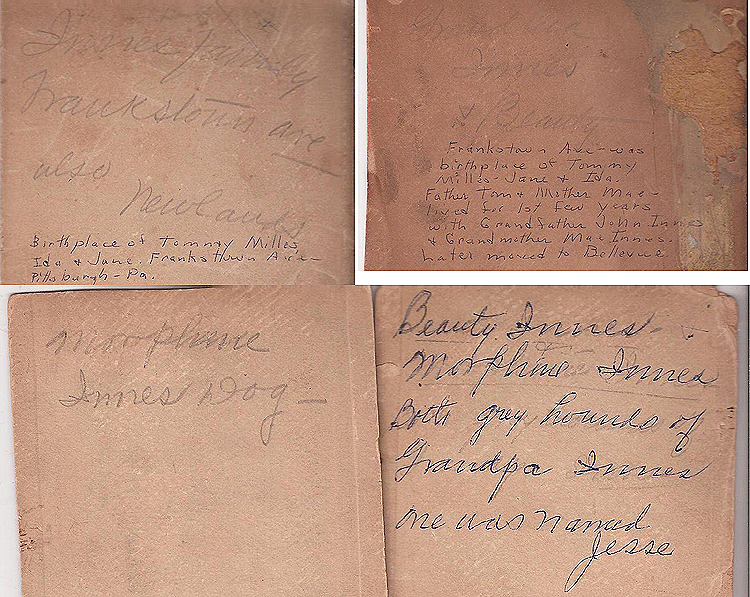 Innes family
Frankstown ave
also
Newlands
Birthplace of Tommy Milles
Ida & Jane. Frankstown Ave—
Pittsburgh - Pa.
Innes
& Beauty
Frankstown Ave - was
birthplace of Tommy
Milles - Jane & Ida.
Father Tom & Mother Mae -
lived for 1st few years
with Grandfather John Innes
& Grandmother Mae Innes.
Later moved to Bellevue
Morphine
Innes Dog —
Beauty Innes
Morphine Innes
Both grey hounds of
Grandpa Innes
one was named
Jesse